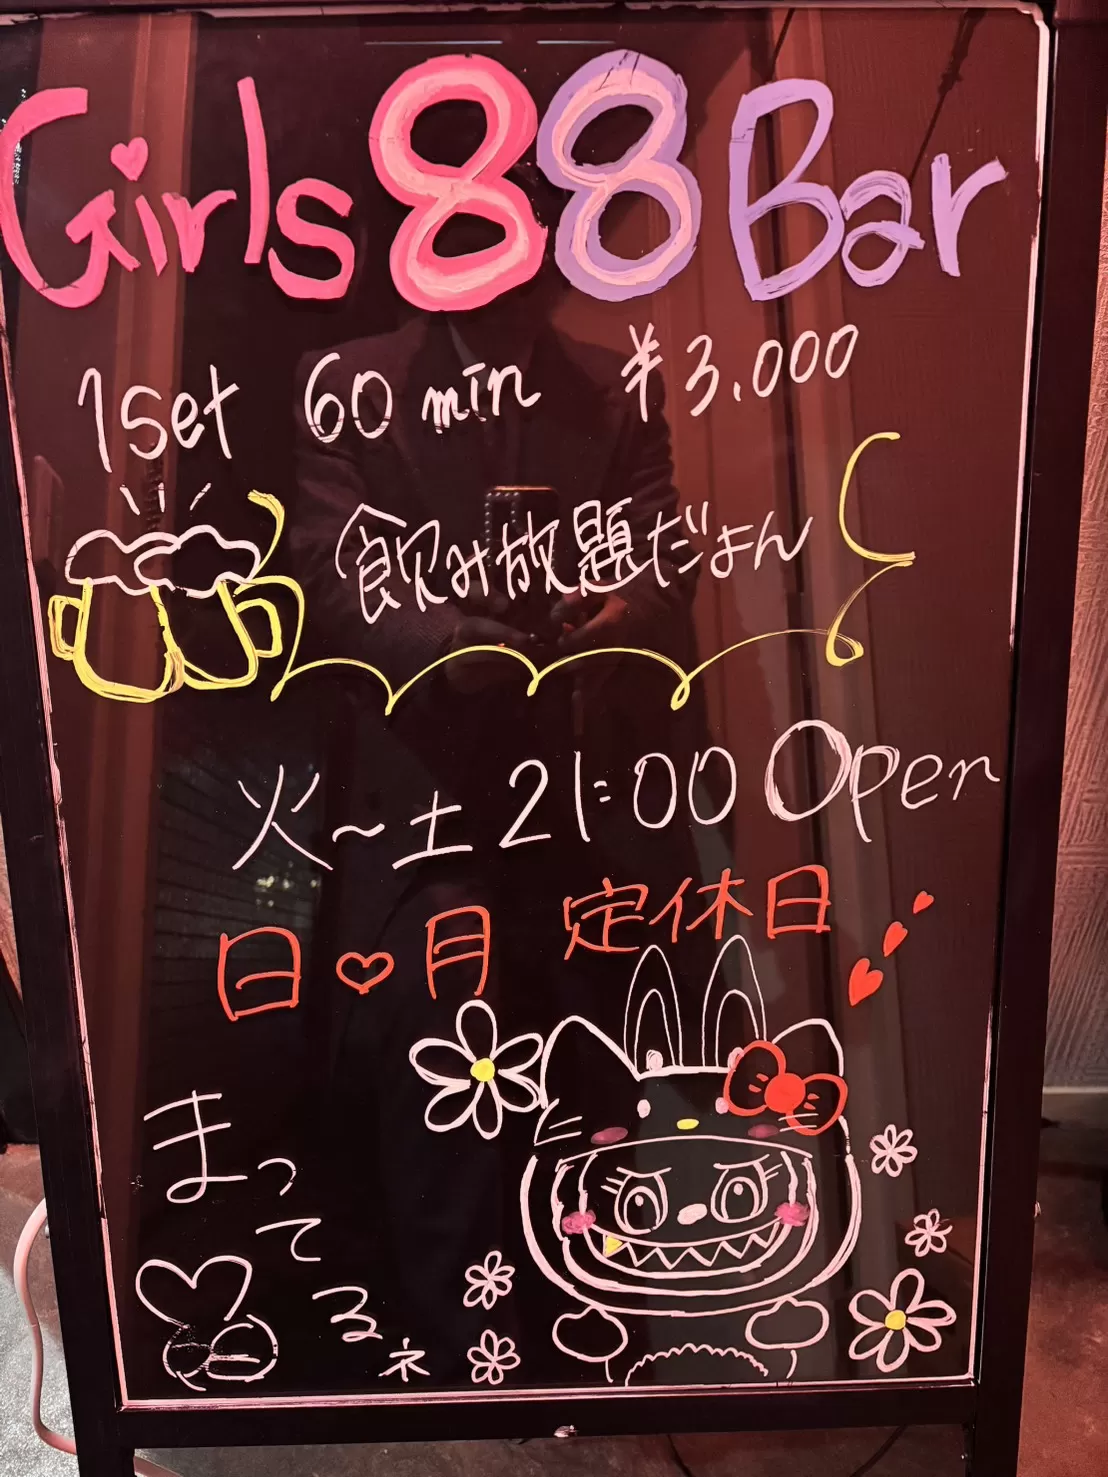 Girls 88 Bar
1set 60min ¥3,000
飲み放題だょん
火～土 21:00 Open
日♡月 定休日
まってるネ